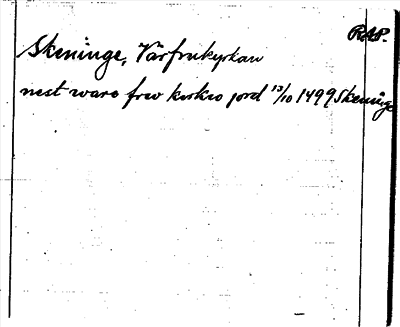 RAP.
Skeninge, Vårfrukyrkan
nest ware frw kirkio jord 13/10 1499 Skeninge